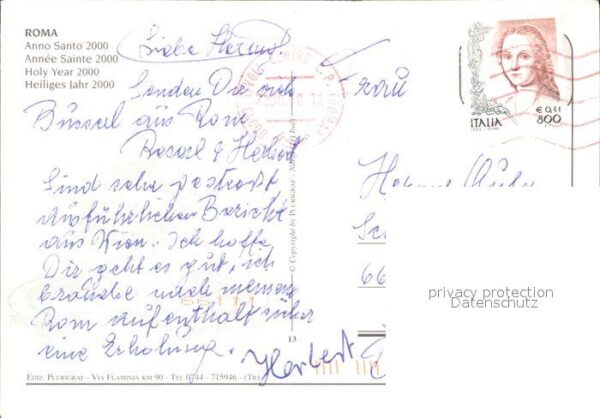 ROMA
Anno Santo 2000
Année Sainte 2000
Holy Year 2000
Heiliges Jahr 2000
Liebe
Senden Dir
Büssel aus Rom
& Herbert
Sind sehr gestresst
ausführlichen Bericht
aus Wien. Ich hoffe
Dir geht es gut, ich
brauche nach meinem
Rom Aufenthalt sicher
eine Erholung.
Herbert
Frau
66
ITALIA
€ 0,41
800
© Copyright by PLURIGRAF
13
privacy protection
Datenschutz
EDIZ. PLURIGRAF - VIA FLAMINIA KM 90 - TEL 0744 - 715946 - (TR)